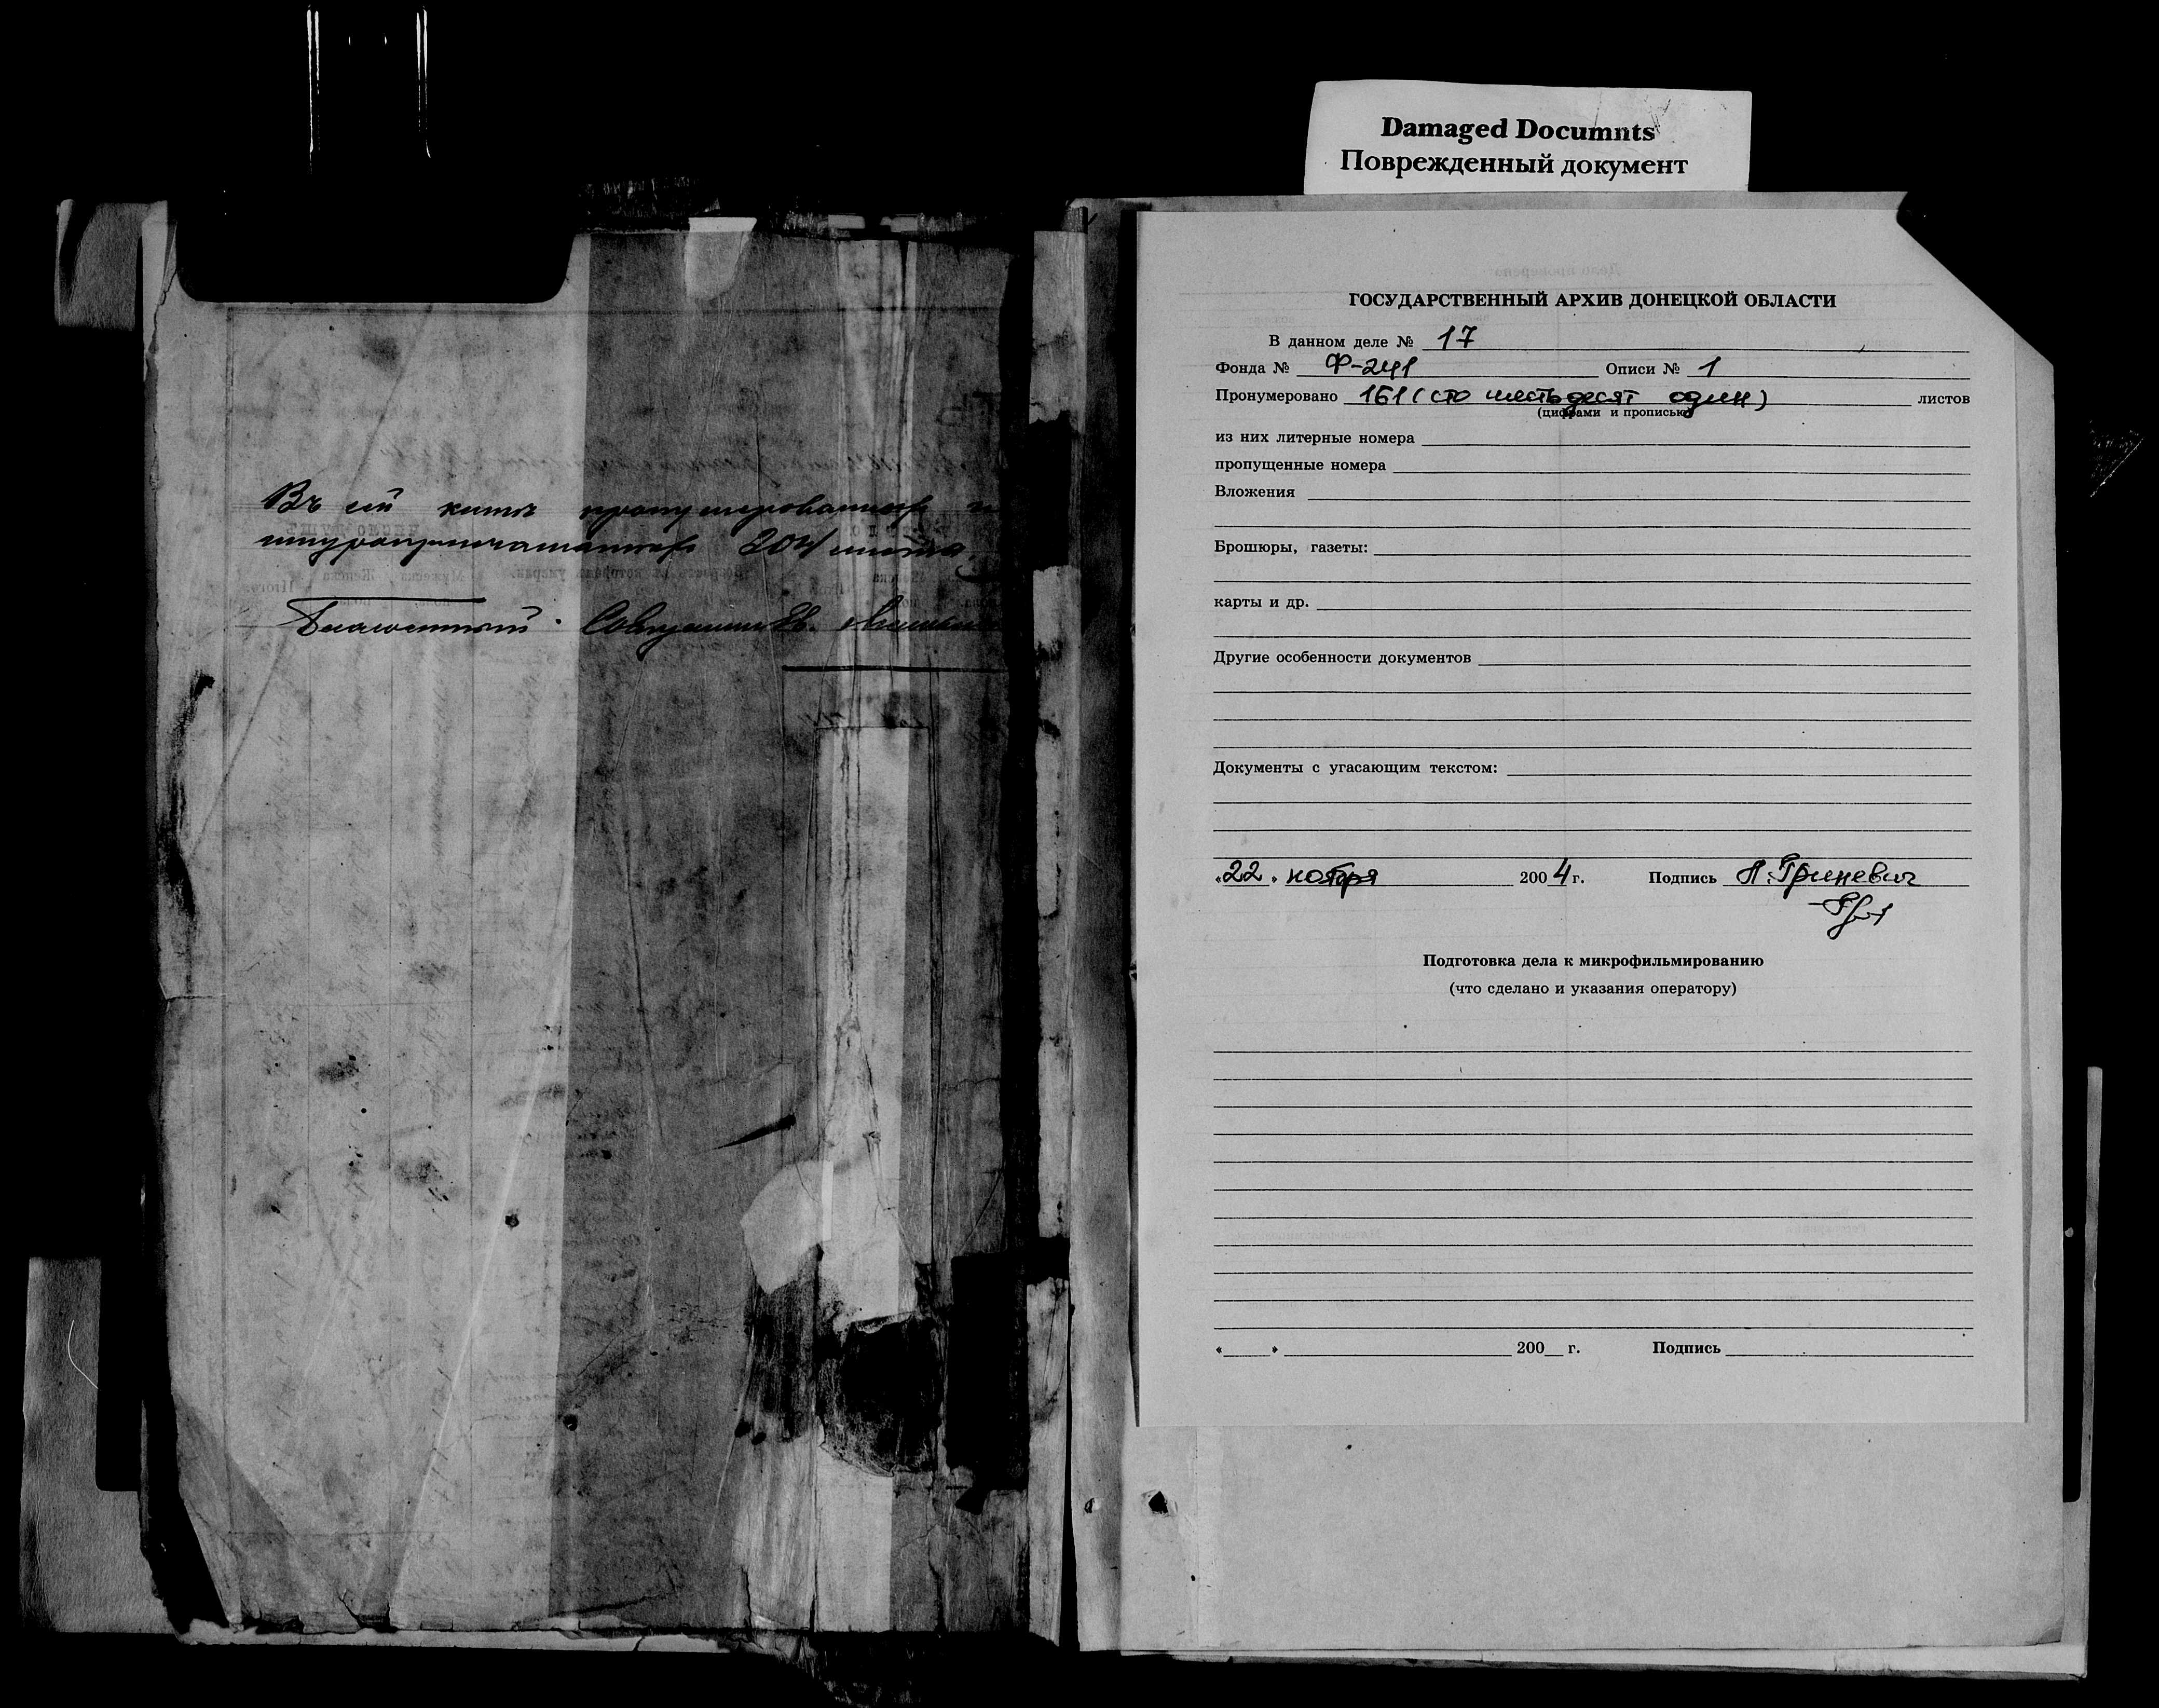 Damaged Documnts
Поврежденный документ
Въ сей книгѣ пронумерованныхъ и
шнуропечатанныхъ 204 листа.
Благочинный Священникъ
ГОСУДАРСТВЕННЫЙ АРХИВ ДОНЕЦКОЙ ОБЛАСТИ
В данном деле № 17
Фонда № Ф-241 Описи № 1
Пронумеровано 161 (сто шестьдесят один) листов
(цифрами и прописью)
из них литерные номера
пропущенные номера
Вложения
Брошюры, газеты:
карты и др.
Другие особенности документов
Документы с угасающим текстом:
«22» ноября 2004 г. Подпись Л. Гриневич
Подготовка дела к микрофильмированию
(что сделано и указания оператору)
« » 200 г. Подпись